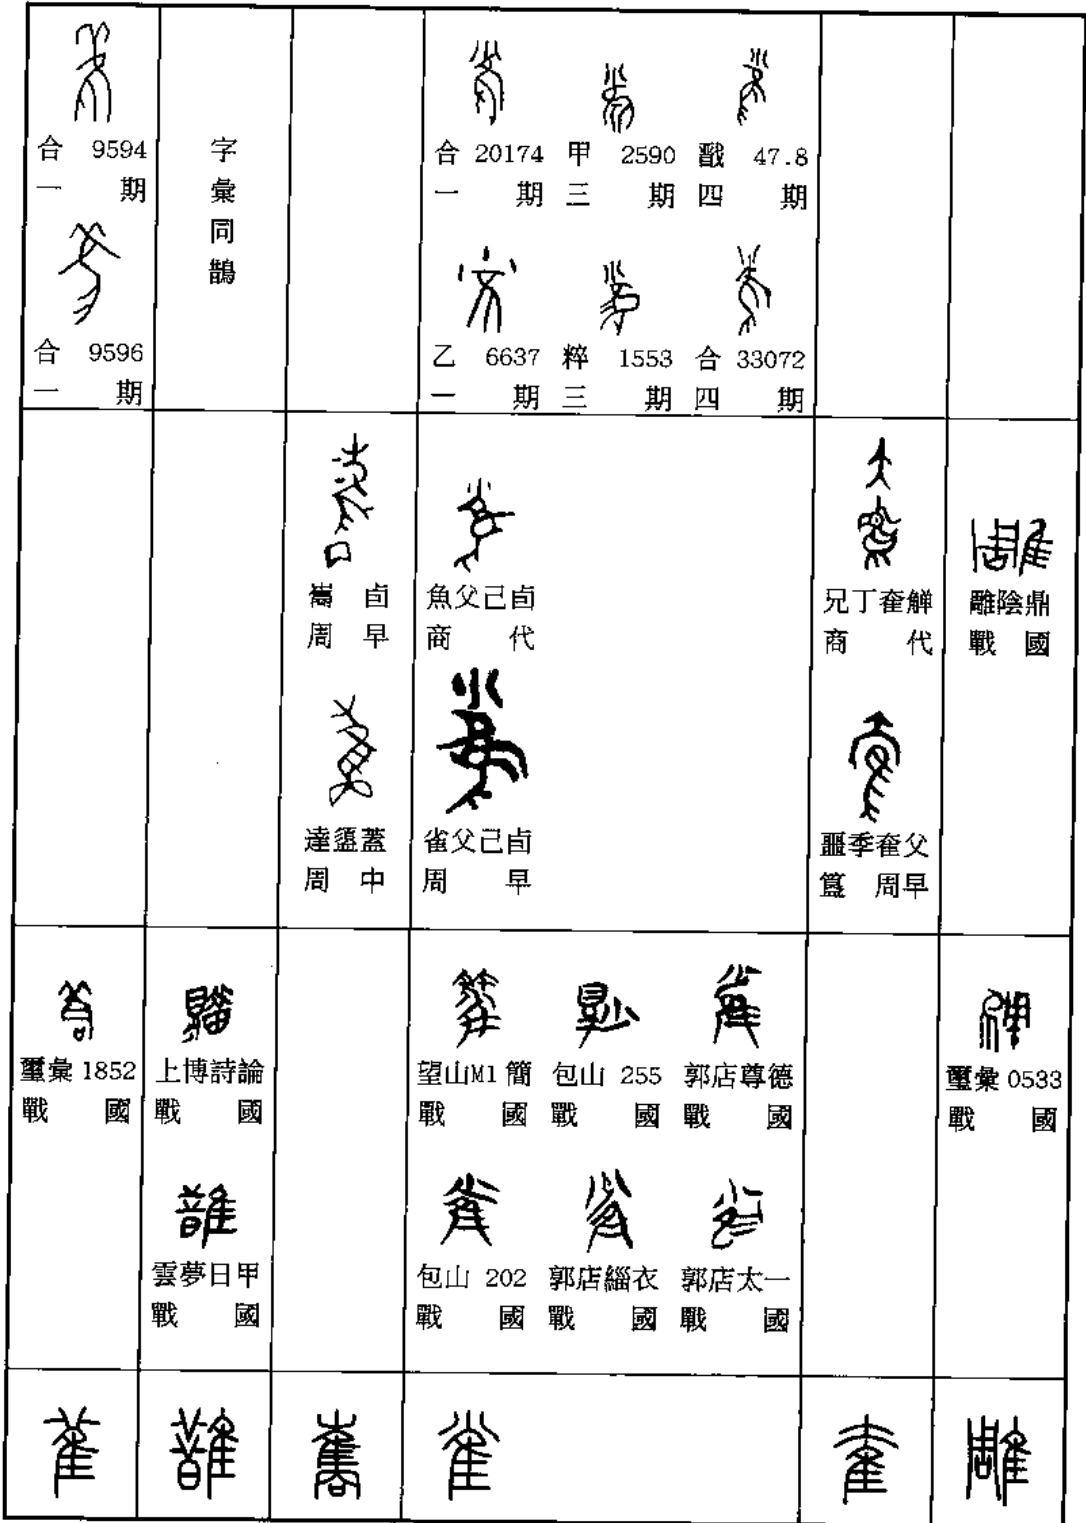 合 9594
一 期
合 9596
一 期
字彙同鵲
合 20174 甲 2590 戩 47.8
一 期 三 期 四 期
乙 6637 粹 1553 合 33072
一 期 三 期 四 期
巂 卣
周 早
達盨蓋
周 中
魚父己卣
商 代
雀父己卣
周 早
兄丁奞觶
商 代
噩季奞父
簋 周早
雕陰鼎
戰 國
璽彙 1852
戰 國
上博詩論
戰 國
雲夢日甲
戰 國
望山M1 簡 包山 255 郭店尊德
戰 國 戰 國 戰 國
包山 202 郭店緇衣 郭店太一
戰 國 戰 國 戰 國
璽彙 0533
戰 國